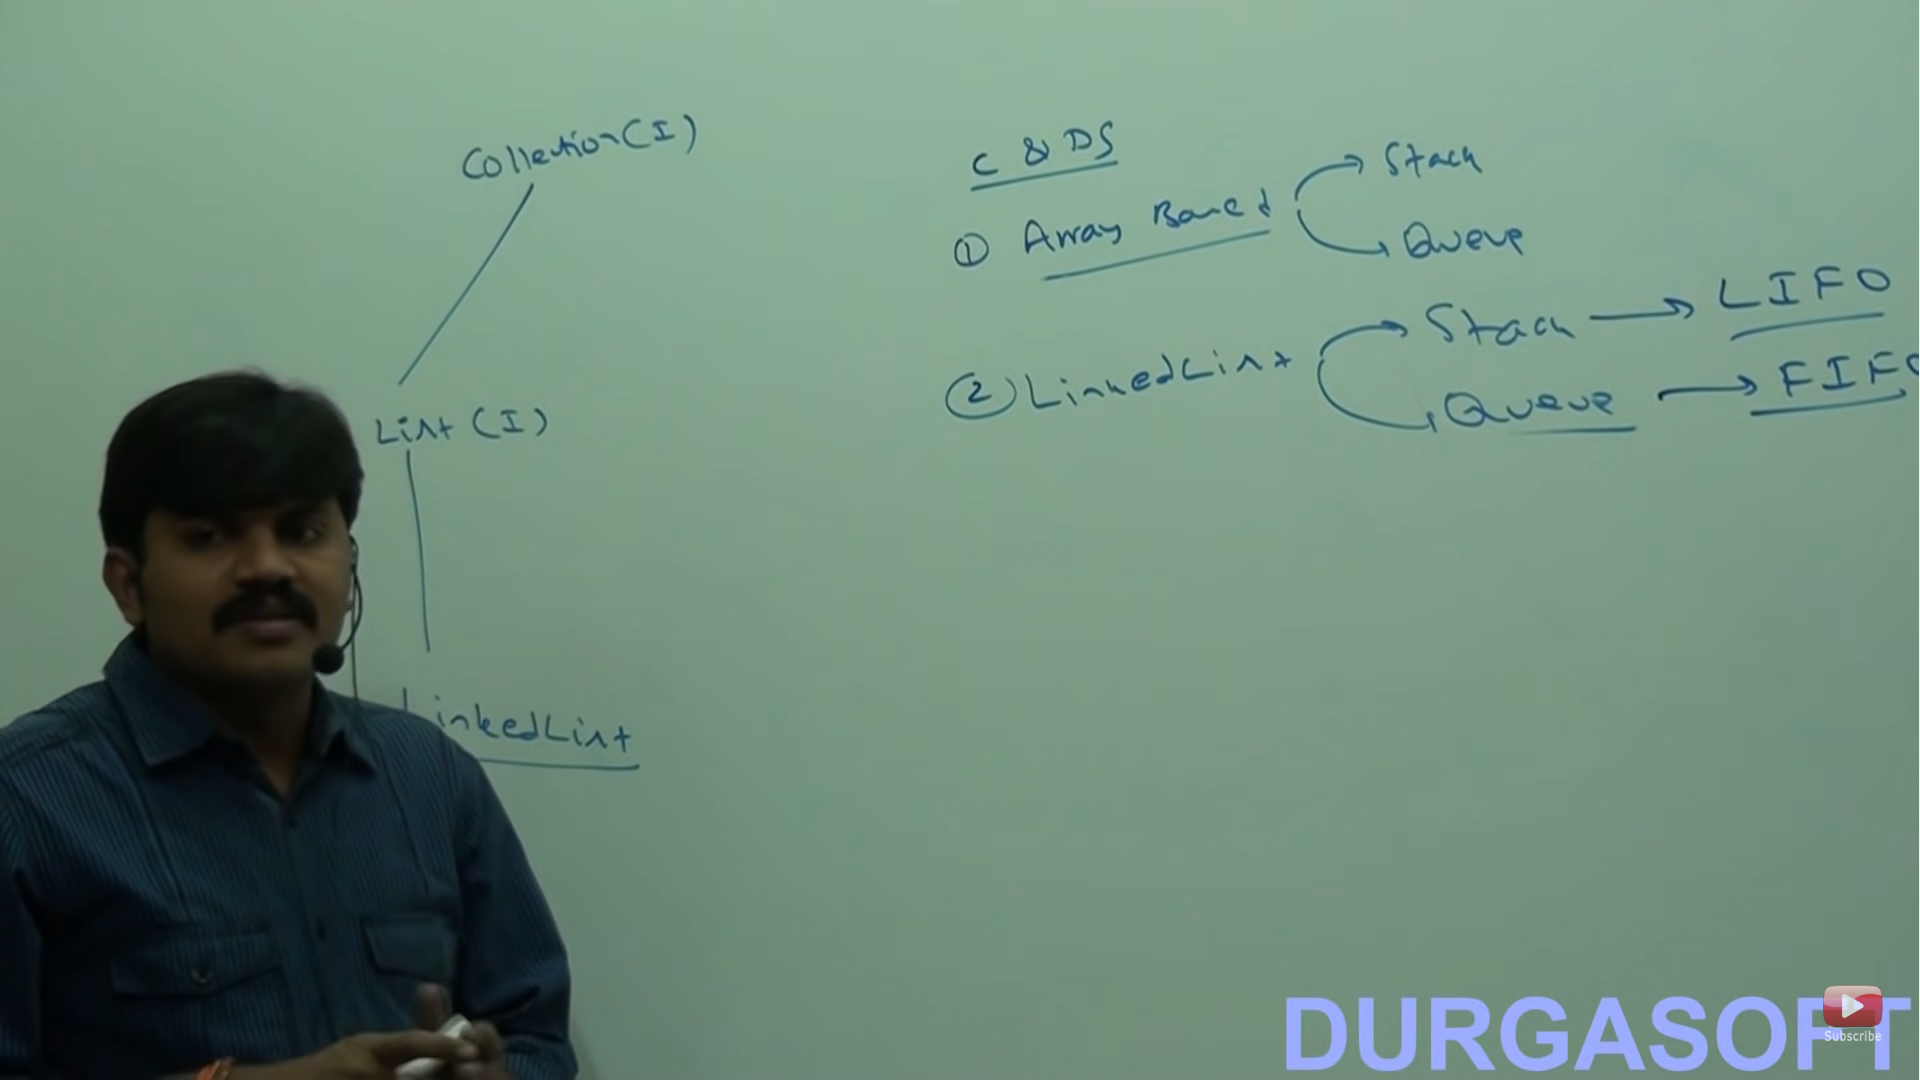 Collection (I)
List (I)
LinkedList
C & DS
① Array Based
Stack
Queue
② LinkedList
Stack → LIFO
Queue → FIFO
DURGASOFT
Subscribe